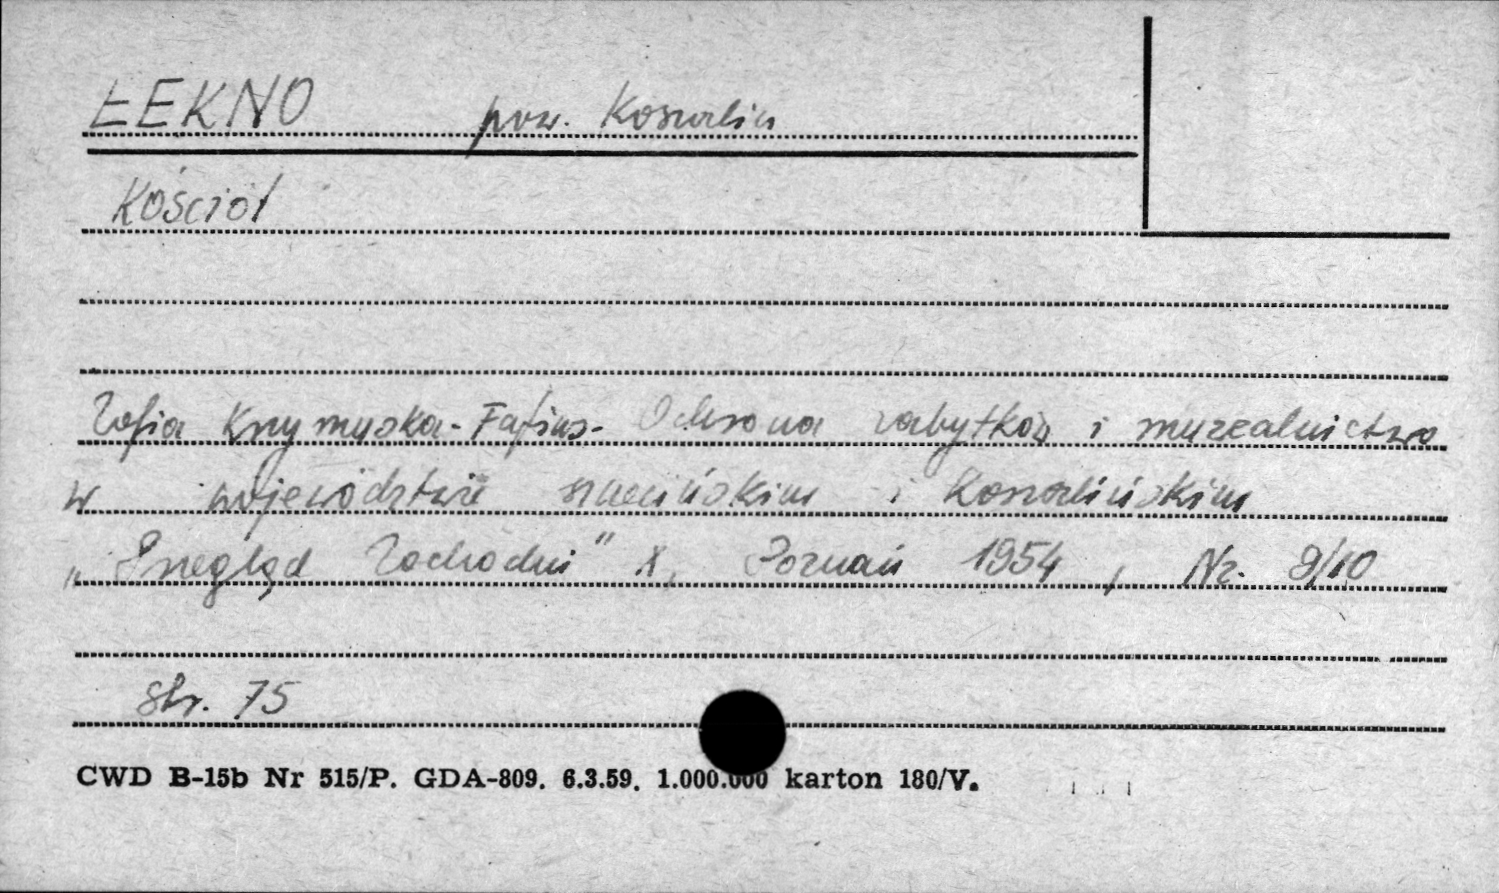 ŁEKNO pow. Koszalin
Kościół
Zofia Krzymuska-Fafius- Ochrona zabytków i muzealnictwo
w województwie szczecińskim i Koszalińskim
„Przegląd Zachodni" X, Poznań 1954, Nr. 9/10
str. 75
CWD B-15b Nr 515/P. GDA-809. 6.3.59. 1.000.000 karton 180/V.